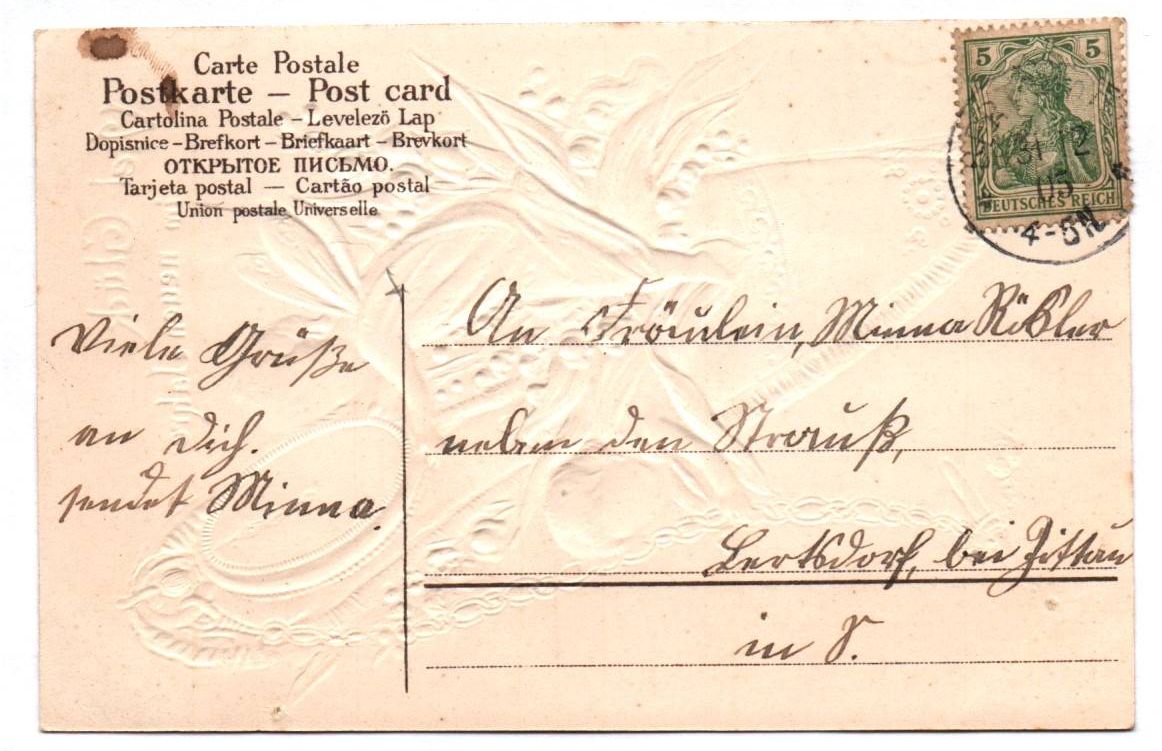 Carte Postale
Postkarte — Post card
Cartolina Postale – Levelező Lap
Dopisnice – Brefkort – Briefkaart – Brevkort
ОТКРЫТОЕ ПИСЬМО.
Tarjeta postal — Cartão postal
Union postale Universelle
5 5
31 12
05
4-5N
DEUTSCHES REICH
Viele Grüße
an Dich.
sendet Minna.
An Fräulein, Minna
neben den Strauß,
bei Zittau
in S.